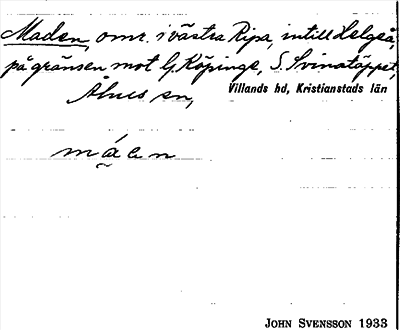 Maden, omr. i västra Ripa, intill Helgeå,
på gränsen mot G. Köpinge, S. Svinatäppet,
Åhus sn, Villands hd, Kristianstads län
máen
JOHN SVENSSON 1933